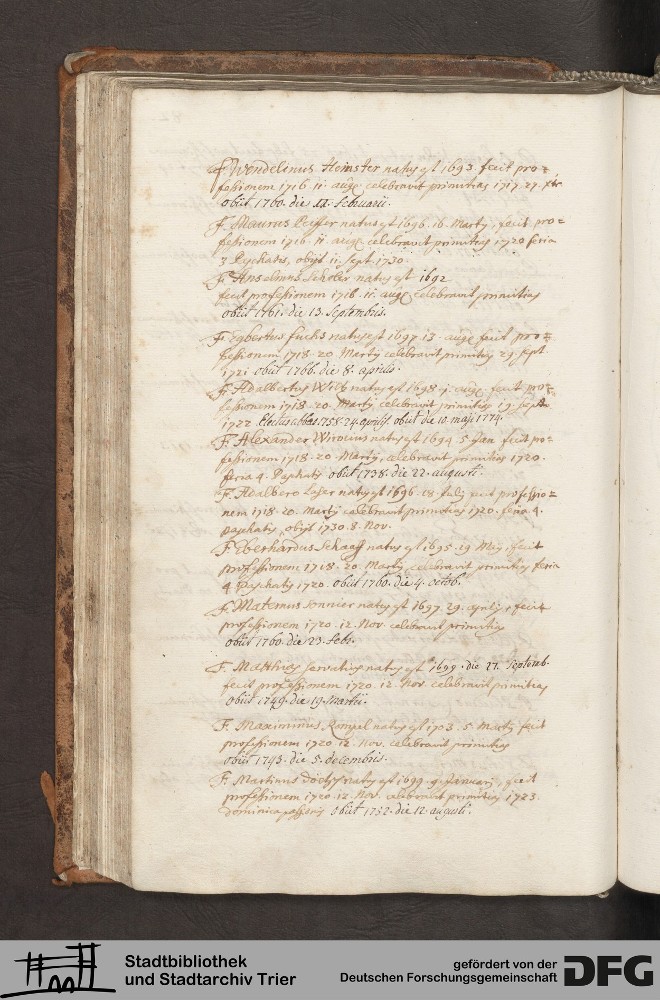 F. Wendelinus Heinster natus est 1693. fecit pro=
fessionem 1716. 11. aug. celebravit primitias 1717. 27.
obiit 1760. die 12. februarii.
F. Maurus Peiffer natus est 1696. 16. Martij, fecit pro=
fessionem 1716. 11. aug. celebravit primitias 1720 feria
3 Paschatis, obijt 11. sept. 1730.
F. Anselmus natus est 1692
fecit professionem 1716. 11. aug. celebravit primitias
obiit 1761. die 13. septembris.
F. Egbertus fuchs natus est 1697. 13. aug. fecit pro=
fessionem 1718. 20. Martij celebravit primitias 29. sept.
1721 obiit 1766. die 8. aprilis.
F. Adalbertus natus est 1698. aug. fecit pro=
fessionem 1718. 20. Martij celebravit primitias 19.
1722. Electus abbas 1758. 24. aprilis. obiit die 10. maji 1774.
F. Alexander natus est 1694. 5. Jan. fecit pro=
fessionem 1718. 20. Martij, celebravit primitias 1720.
feria 4. Paschatis obiit 1738. die 22. augusti.
F. Adalbero natus est 1696. 18. Julij fecit professio=
nem 1718. 20. Martij celebravit primitias 1720. feria 4.
paschatis, obijt 1730. 8. Nov.
F. Eberhardus Schaaff natus est 1695. 19. Maij, fecit
professionem 1718. 20. Martij celebravit primitias feria
4. Paschatis 1720. obiit 1760. die 4. octob.
F. Maternus Sonnier natus est 1697. 29. aprilis, fecit
professionem 1720. 12. Nov. celebravit primitias
obiit 1760. die 23. febr.
F. Matthias servatius natus est 1699. die 27. Septemb.
fecit professionem 1720. 12. Nov. celebravit primitias
obiit 1749. die 19. Martii.
F. Maximinus Rompel natus est 1703. 5. Martij fecit
professionem 1720. 12. Nov. celebravit primitias
obiit 1743. die 5. decembris.
F. Martinus natus est 1699. 9. Januarij, fecit
professionem 1720. 12. Nov. celebravit primitias 1723.
Dominica passionis obiit 1752. die 12. augusti.
Stadtbibliothek
und Stadtarchiv Trier
gefördert von der
Deutschen Forschungsgemeinschaft
DFG